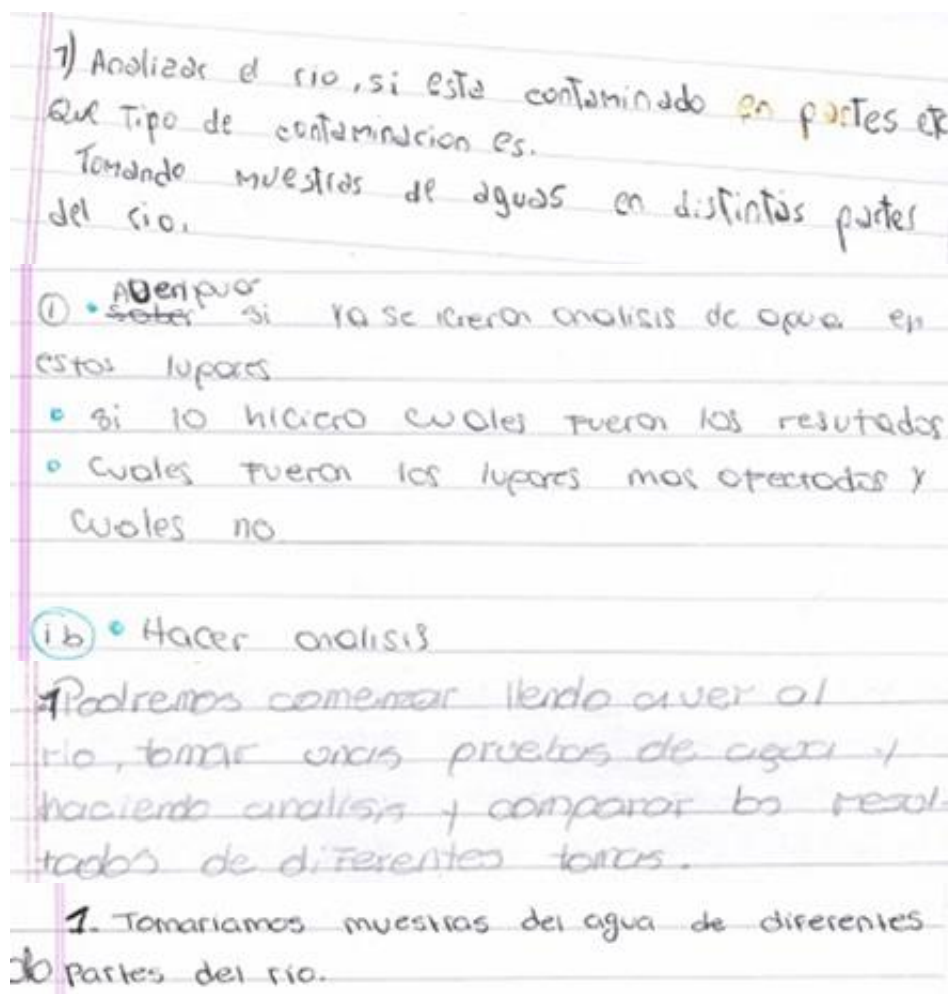 1) Analizar el rio, si esta contaminado en partes
Que Tipo de contaminacion es.
Tomando muestras de aguas en distintas partes
del rio.
① • Averiguar si ya se icieron analisis de agua en
estos lugares
• si lo hiciero cuales fueron los resutados
• Cuales fueron los lugares mas afectados y
cuales no
1b • Hacer analisis
1 Podremos comenzar llendo a ver al
rio, tomar unas pruebas de agua y
haciendo analisis y comparar los resul-
tados de diferentes tomas.
1. Tomariamos muestras del agua de diferentes
partes del rio.